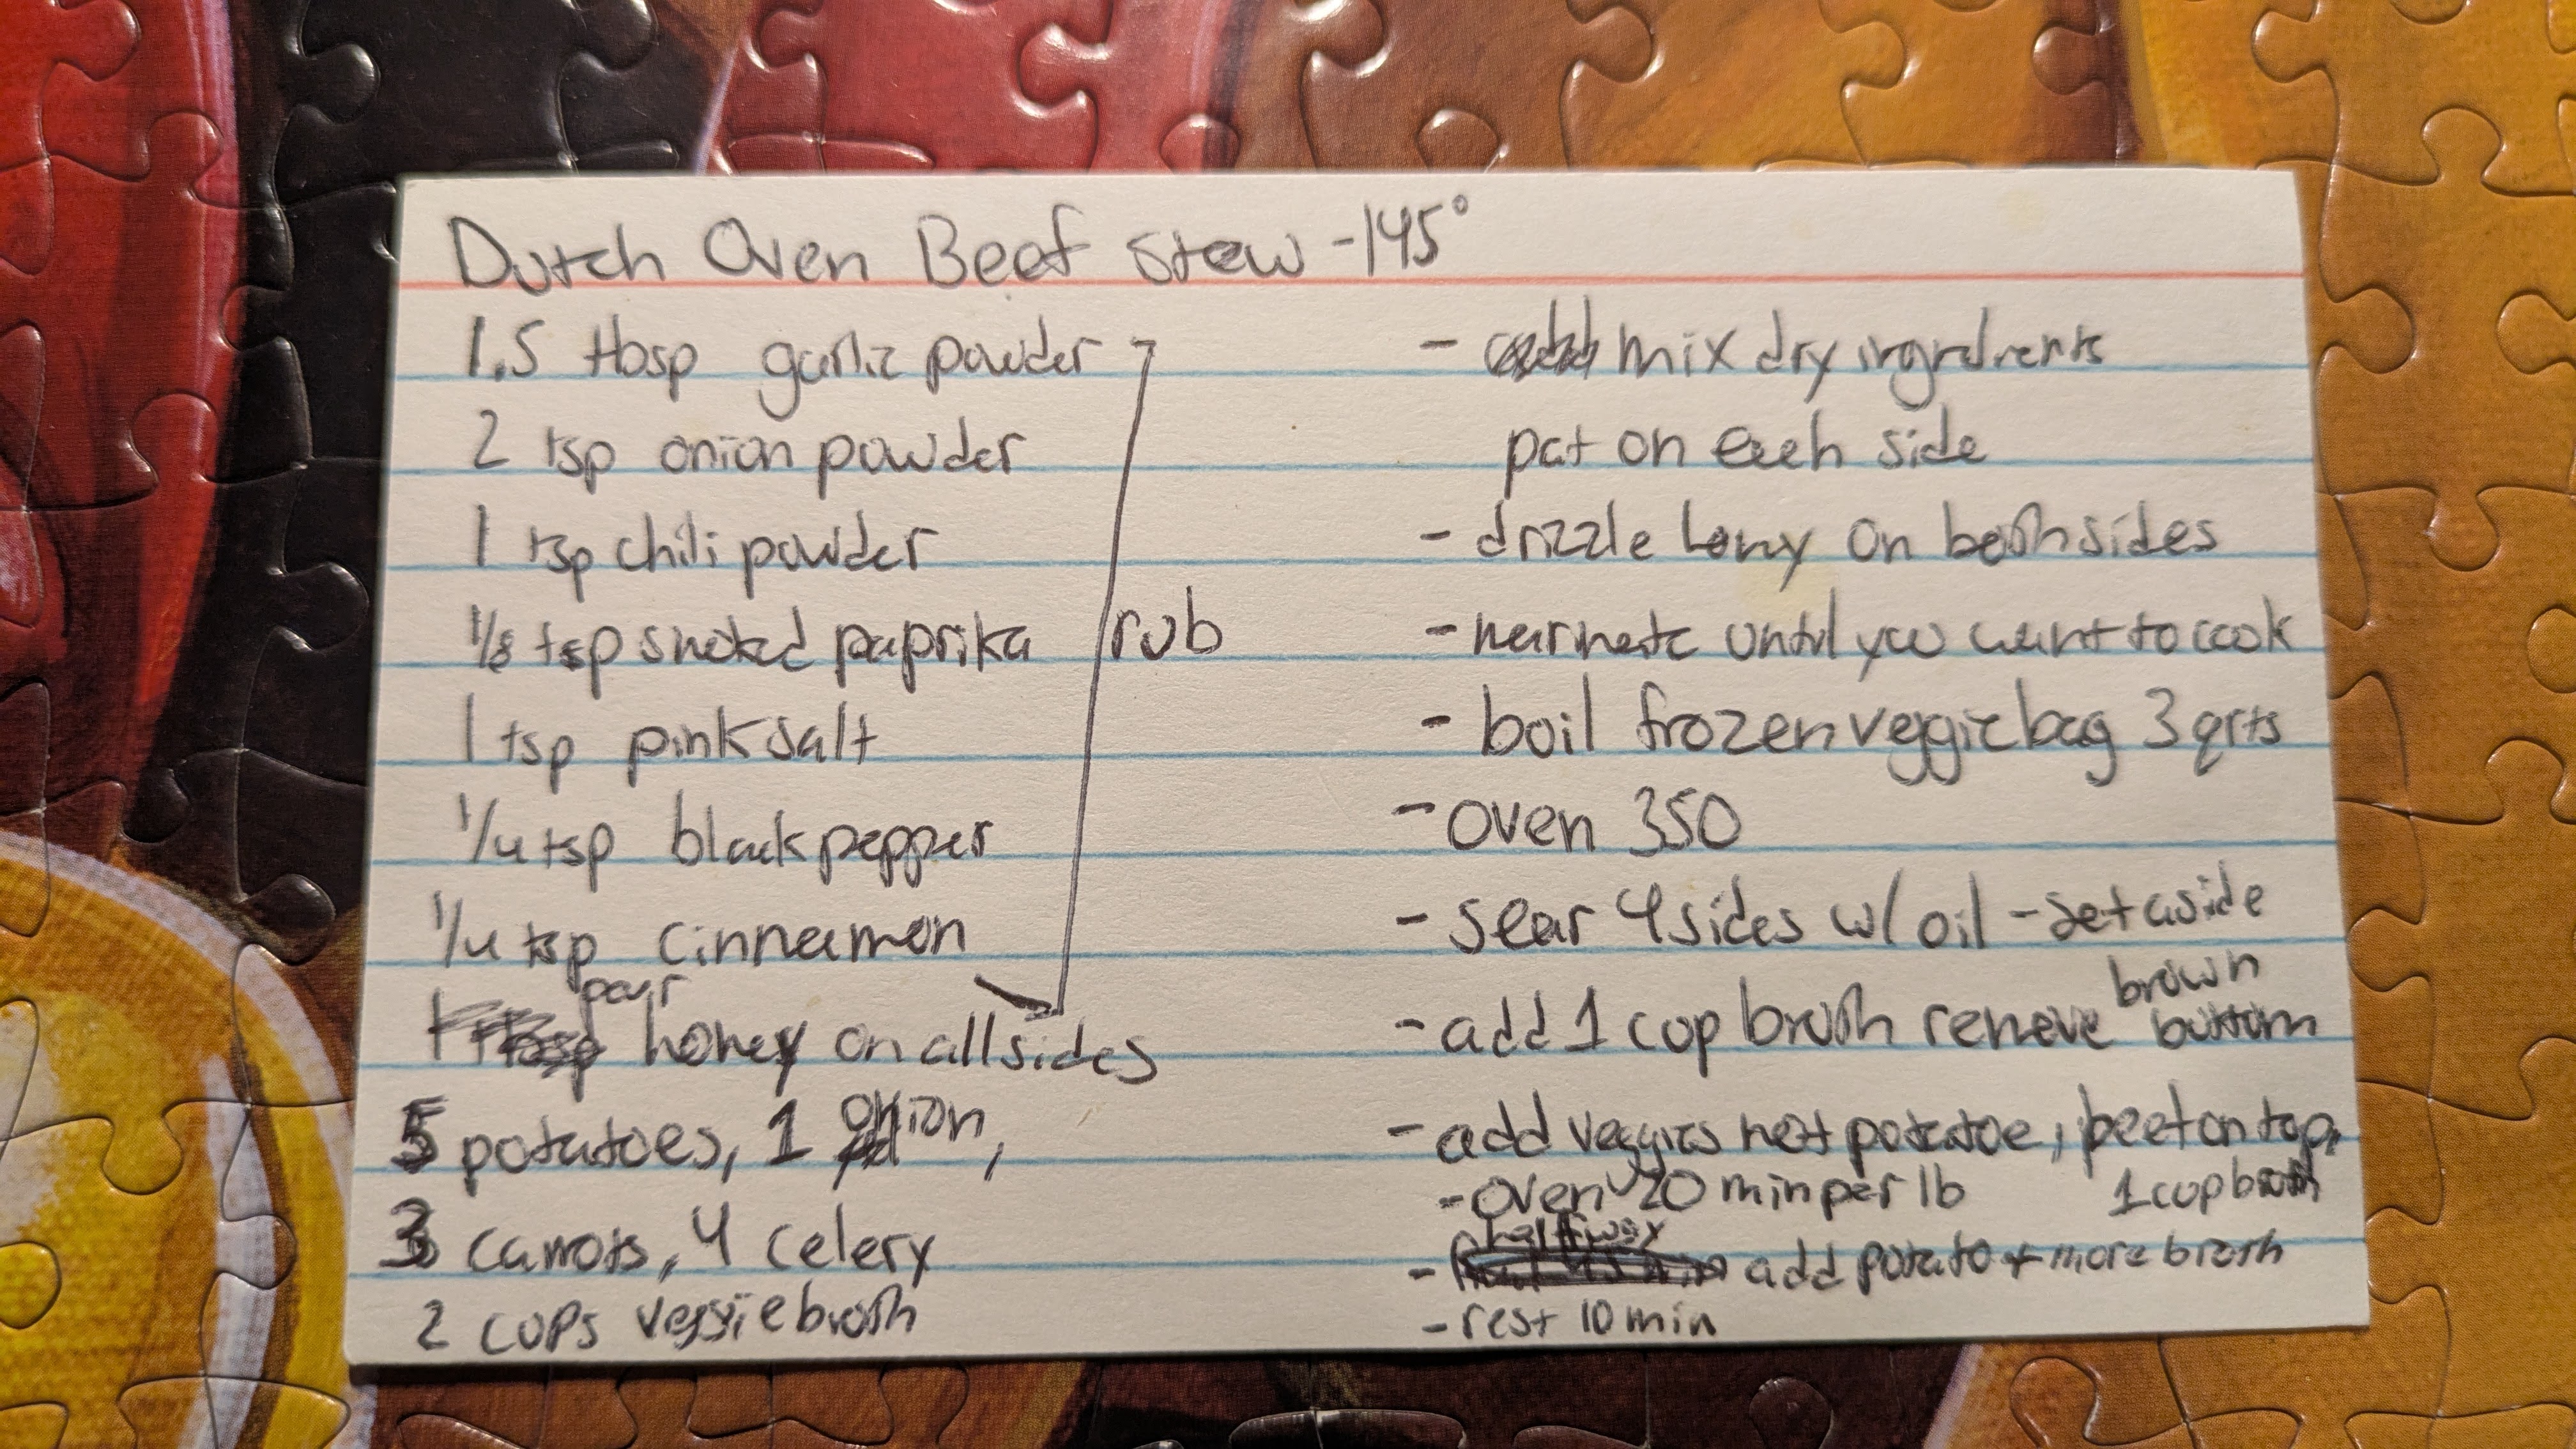 Dutch Oven Beef Stew -145°
1.5 tbsp garlic powder
2 tsp onion powder
1 tsp chili powder
1/8 tsp smoked paprika
rub
1 tsp pink salt
1/4 tsp black pepper
1/4 tsp cinnamon
pour
honey on all sides
5 potatoes, 1 onion,
3 carrots, 4 celery
2 cups veggie broth
- mix dry ingredients
pat on each side
- drizzle honey on both sides
- marinate until you want to cook
- boil frozen veggie bag 3 qrts
- oven 350
- sear 4 sides w/ oil - set aside
brown
- add 1 cup broth remove bottom
- add veggies not potatoe, beef on top,
- oven 20 min per lb 1 cup broth
halfway
- add potato + more broth
- rest 10 min